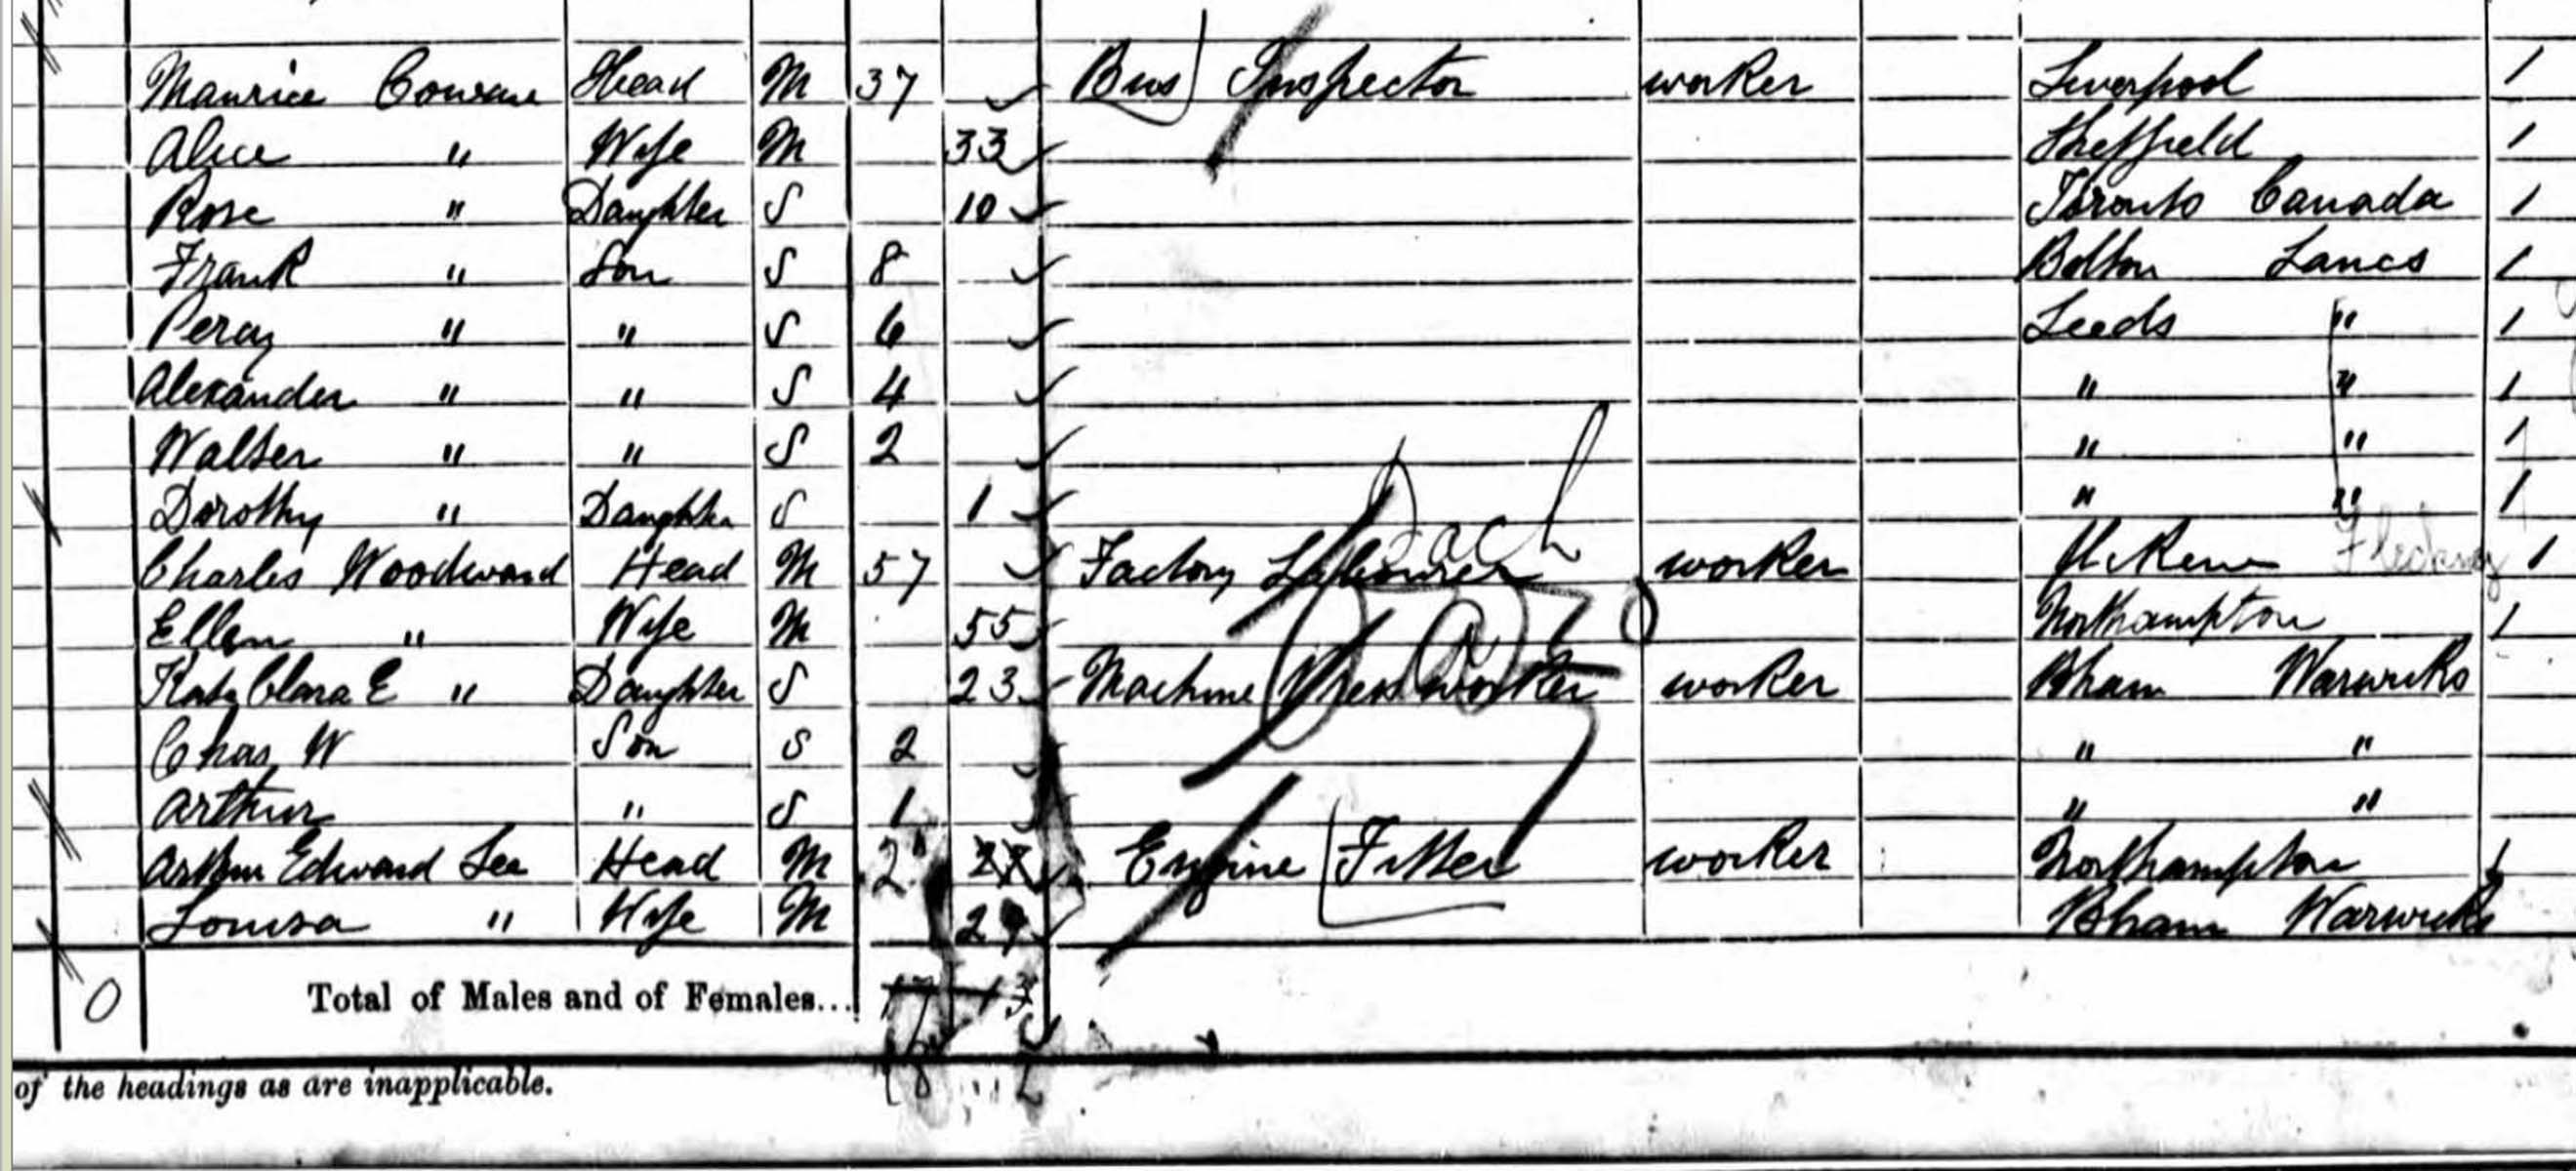 Maurice Head M 37 Bus Inspector worker Liverpool 1
Alice " Wife M 33 Sheffield 1
Rose " Daughter S 10 Toronto Canada 1
Frank " Son S 8 Bolton Lancs 1
Percy " " S 6 Leeds " 1
Alexander " " S 4 " " 1
Walter " " S 2 " " 1
Dorothy " Daughter S 1 " " 1
Charles Woodward Head M 57 Factory Labourer worker 1
Ellen " Wife M 55 Northampton 1
Kate Clara E " Daughter S 23 Machine Press worker worker Bham Warwicks
Chas W Son S 2 " "
Arthur " S 1 " "
Arthur Edward Lee Head M Engine Fitter worker Northampton
Louisa " Wife M Bham Warwicks
0 Total of Males and of Females...
of the headings as are inapplicable.